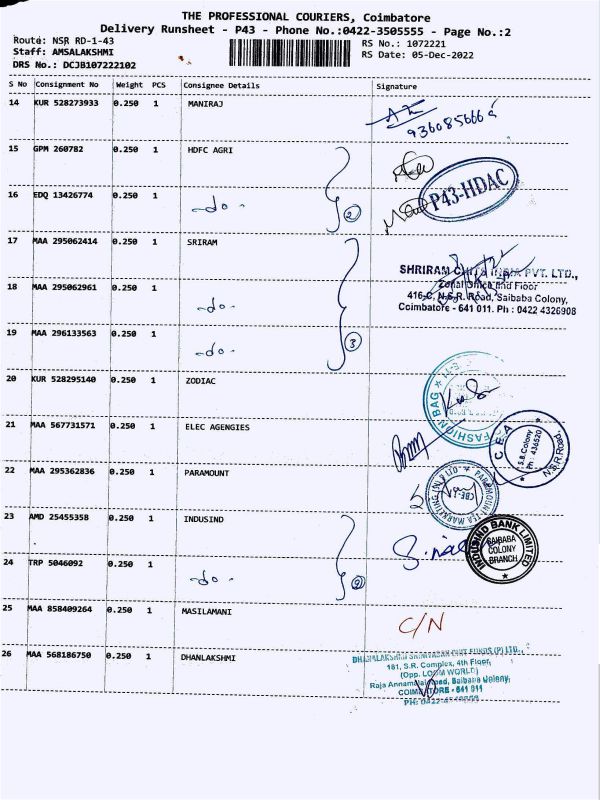 THE PROFESSIONAL COURIERS, Coimbatore
Delivery Runsheet - P43 - Phone No.:0422-3505555 - Page No.:2
Route: NSR RD-1-43
RS No.: 1072221
Staff: AMSALAKSHMI
RS Date: 05-Dec-2022
DRS No.: DCJB107222102
S No Consignment No Weight PCS Consignee Details Signature
14 KUR 528273933 0.250 1 MANIRAJ
9360856666
15 GPM 260782 0.250 1 HDFC AGRI
P43-HDAC
16 EDQ 13426774 0.250 1 -do- 2
17 MAA 295062414 0.250 1 SRIRAM
SHRIRAM CHITS INDIA PVT. LTD.,
Zonal Office IInd Floor
18 MAA 295062961 0.250 1 -do-
416-C, N.S.R. Road, Saibaba Colony,
Coimbatore - 641 011. Ph : 0422 4326908
19 MAA 296133563 0.250 1 -do- 3
20 KUR 528295140 0.250 1 ZODIAC
FASHION BAG
21 MAA 567731571 0.250 1 ELEC AGENGIES
C E A
S.B.Colony
Ph : 436520
N.S.R.Road,
22 MAA 295362836 0.250 1 PARAMOUNT
CBE-11
23 AMD 25455358 0.250 1 INDUSIND
INDUSIND BANK LIMITED
SAIBABA
COLONY
BRANCH
24 TRP 5046092 0.250 1 -do-
25 MAA 858409264 0.250 1 MASILAMANI
C/N
26 MAA 568186750 0.250 1 DHANLAKSHMI
DHANALAKSHMI SRINIVASAN CHIT FUNDS (P) LTD.,
181, S.R. Complex, 4th Floor,
(Opp. LOOM WORLD)
Raja Annamalai Road, Saibaba Colony,
COIMBATORE - 641 011